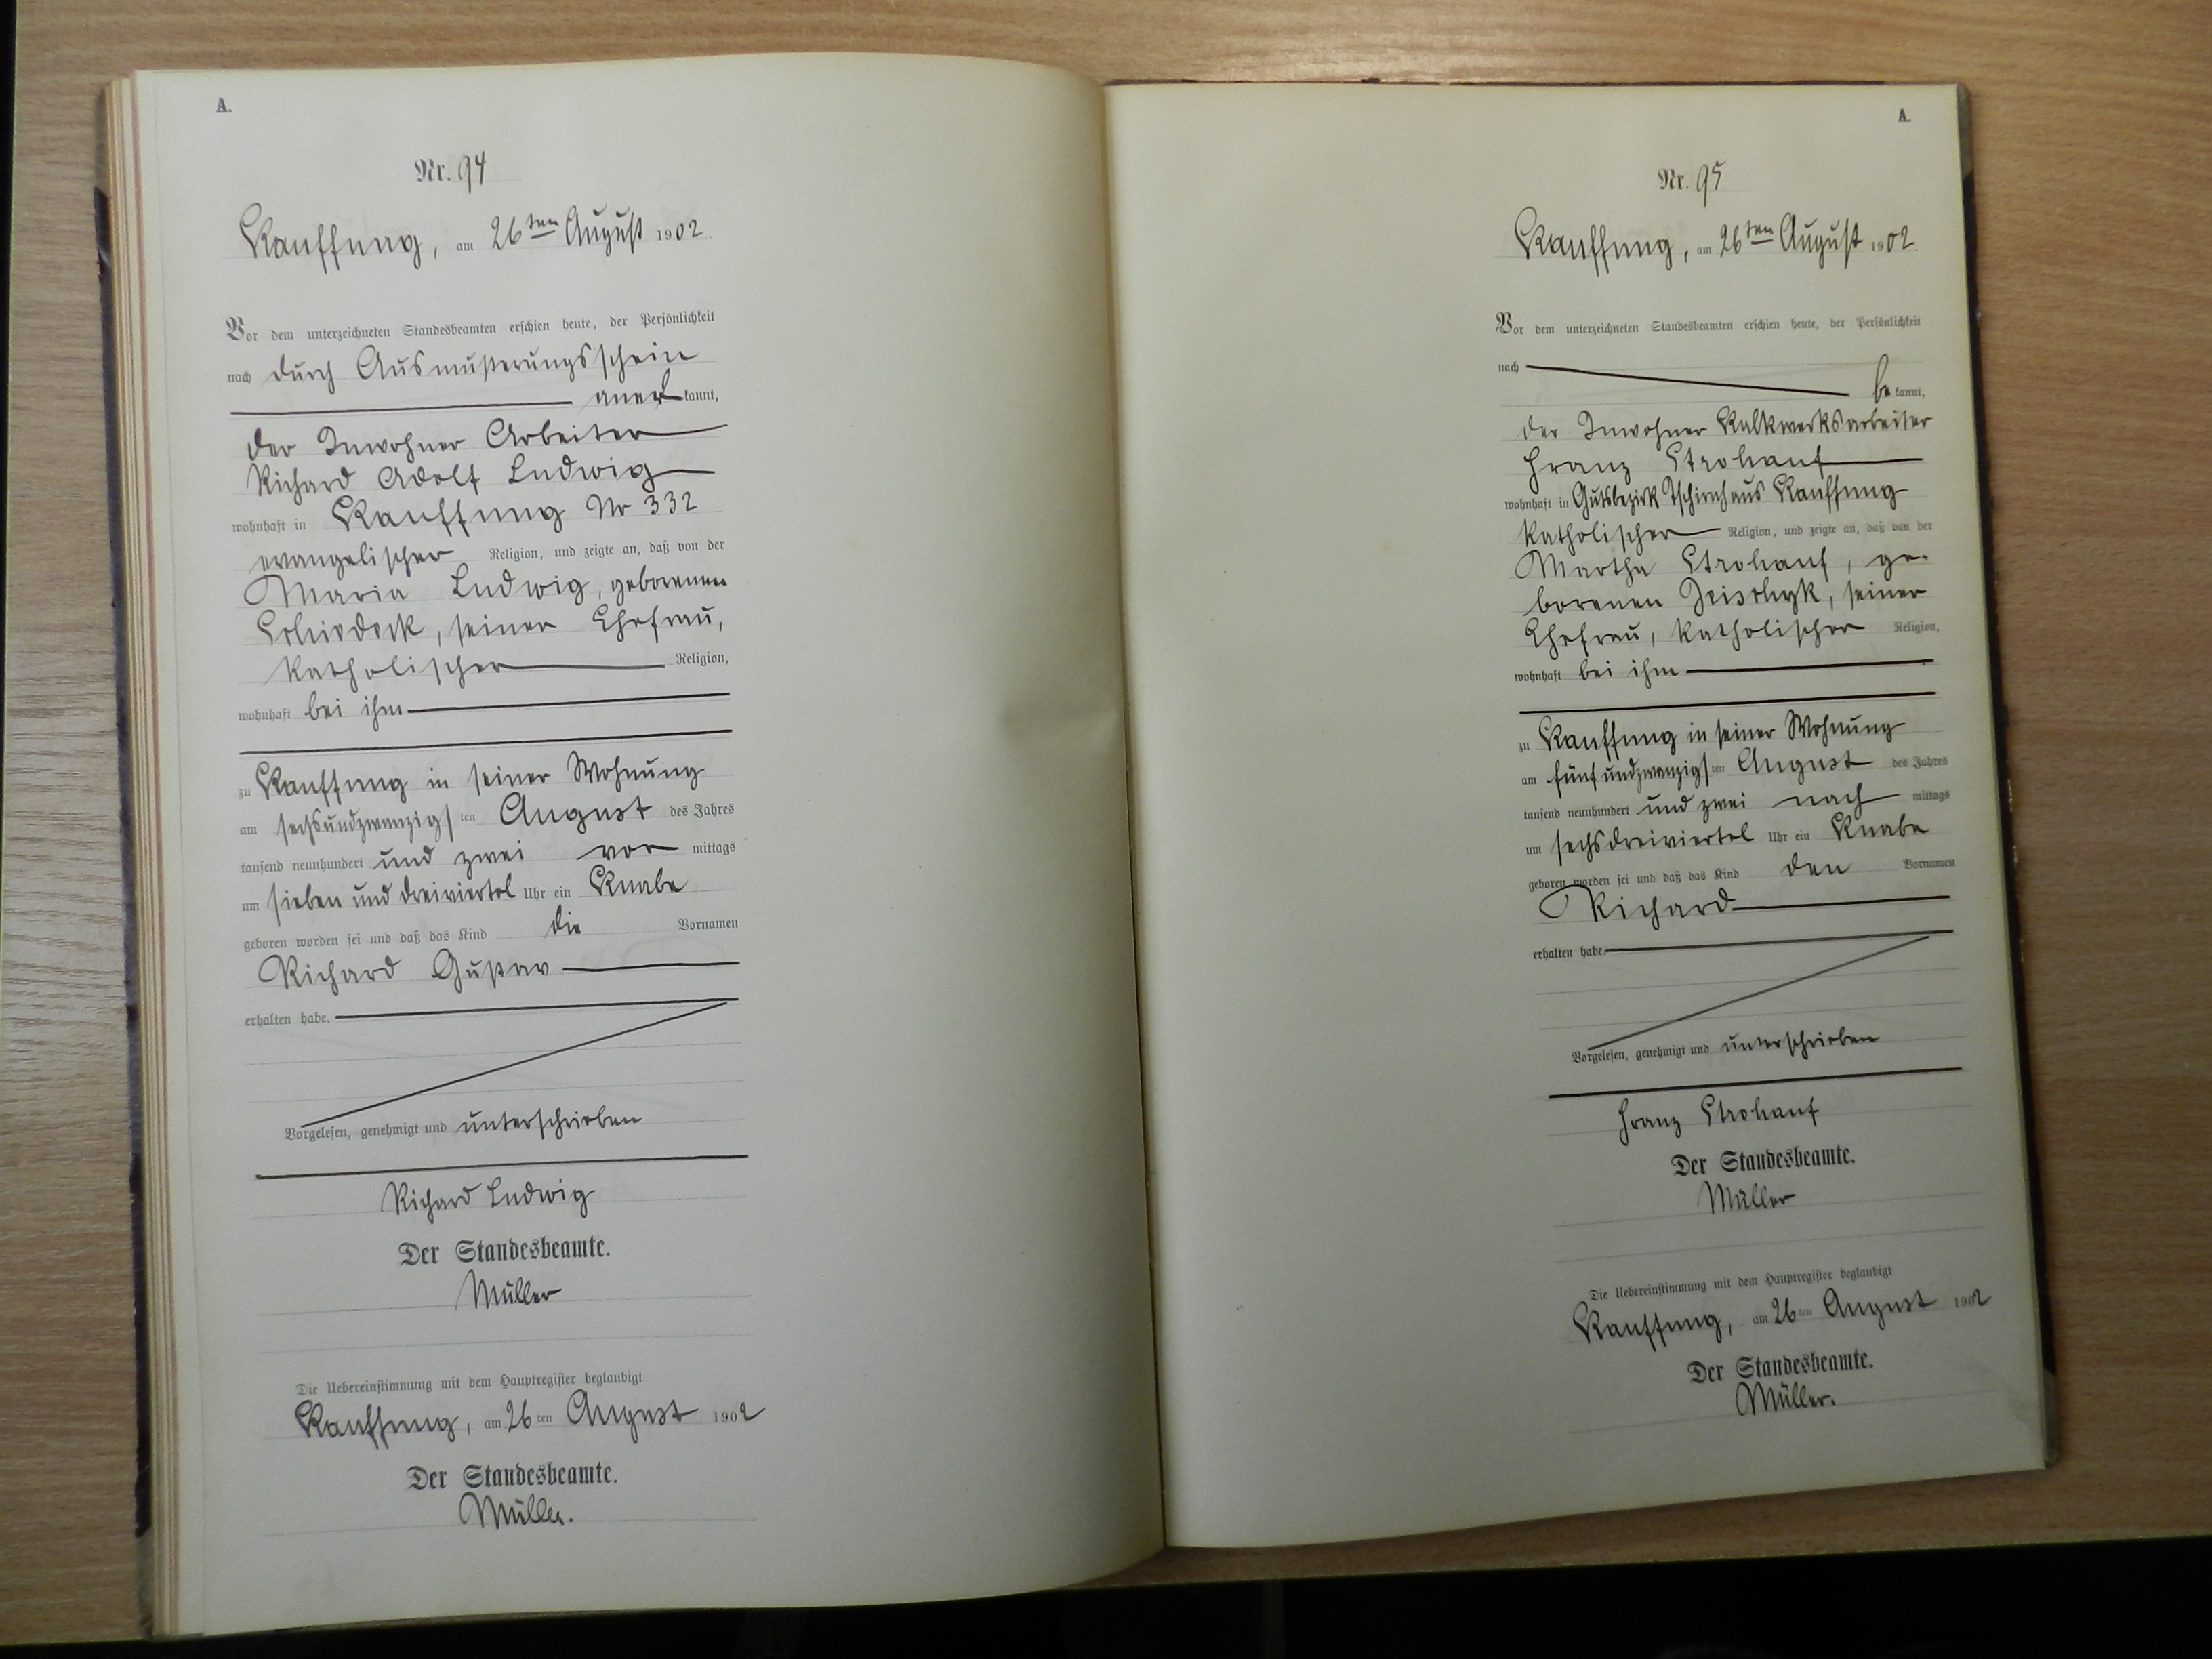 A.
Nr. 94
Kauffung, am 26ten August 1902.
Vor dem unterzeichneten Standesbeamten erschien heute, der Persönlichkeit
nach durch Ausmusterungsschein
anerkannt,
der Inwohner Arbeiter
Richard Adolf Ludwig
wohnhaft in Kauffung Nr 332
evangelischer Religion, und zeigte an, daß von der
Maria Ludwig, geborenen
seiner Ehefrau,
katholischer Religion,
wohnhaft bei ihm
zu Kauffung in seiner Wohnung
am sechsundzwanzigsten August des Jahres
tausend neunhundert und zwei vor mittags
um sieben und dreiviertel Uhr ein Knabe
geboren worden sei und daß das Kind die Vornamen
Richard Gustav
erhalten habe.
Vorgelesen, genehmigt und unterschrieben
Richard Ludwig
Der Standesbeamte.
Müller
Die Uebereinstimmung mit dem Hauptregister beglaubigt
Kauffung, am 26ten August 1902
Der Standesbeamte.
Müller.
A.
Nr. 95
Kauffung, am 26ten August 1902.
Vor dem unterzeichneten Standesbeamten erschien heute, der Persönlichkeit
nach
bekannt,
der Inwohner Kalkwerksarbeiter
Franz Strohauf
wohnhaft in Gutsbezirk Tschirnhaus Kauffung
katholischer Religion, und zeigte an, daß von der
Martha Strohauf, ge-
borenen seiner
Ehefrau, katholischer Religion,
wohnhaft bei ihm
zu Kauffung in seiner Wohnung
am fünfundzwanzigsten August des Jahres
tausend neunhundert und zwei nach mittags
um sechsdreiviertel Uhr ein Knabe
geboren worden sei und daß das Kind den Vornamen
Richard
erhalten habe.
Vorgelesen, genehmigt und unterschrieben
Franz Strohauf
Der Standesbeamte.
Müller
Die Uebereinstimmung mit dem Hauptregister beglaubigt
Kauffung, am 26ten August 1902
Der Standesbeamte.
Müller.